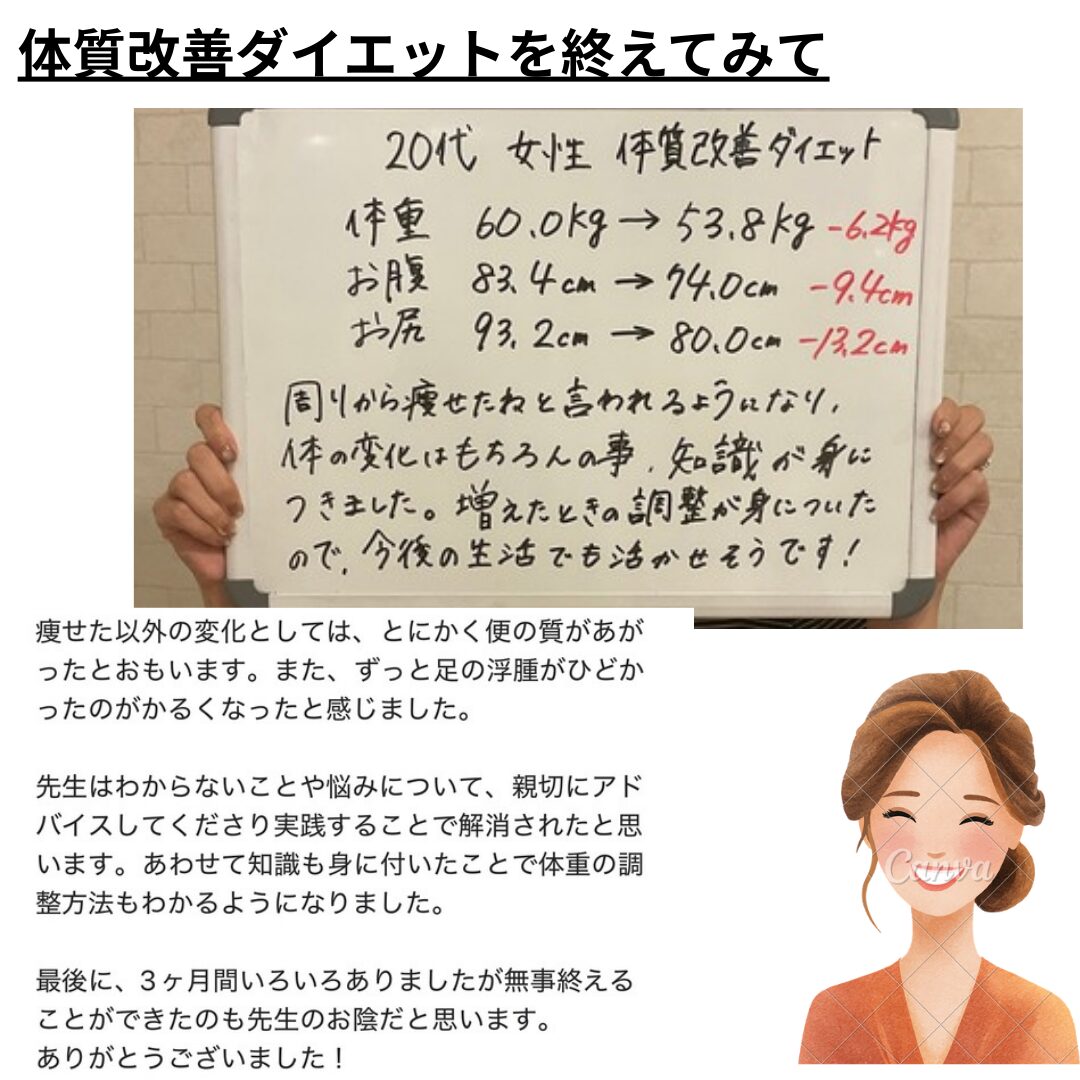 体質改善ダイエットを終えてみて
20代 女性 体質改善ダイエット
体重 60.0kg → 53.8kg -6.2kg
お腹 83.4cm → 74.0cm -9.4cm
お尻 93.2cm → 80.0cm -13.2cm
周りから痩せたねと言われるようになり、
体の変化はもちろんの事、知識が身に
つきました。増えたときの調整が身についた
ので、今後の生活でも活かせそうです！
痩せた以外の変化としては、とにかく便の質があが
ったとおもいます。また、ずっと足の浮腫がひどか
ったのがかるくなったと感じました。
先生はわからないことや悩みについて、親切にアド
バイスしてくださり実践することで解消されたと思
います。あわせて知識も身に付いたことで体重の調
整方法もわかるようになりました。
最後に、3ヶ月間いろいろありましたが無事終える
ことができたのも先生のお陰だと思います。
ありがとうございました！
Canva